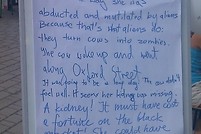 why she was
abducted and mutilated by aliens
Because that's what aliens do.
they turn cows into zombies
She you woke up and went
along Oxford Street
It was to be a long day. She didn't
feel well. It seems her kidney was missing.
A kidney! It must have cost
a fortune on the black
market! She could have